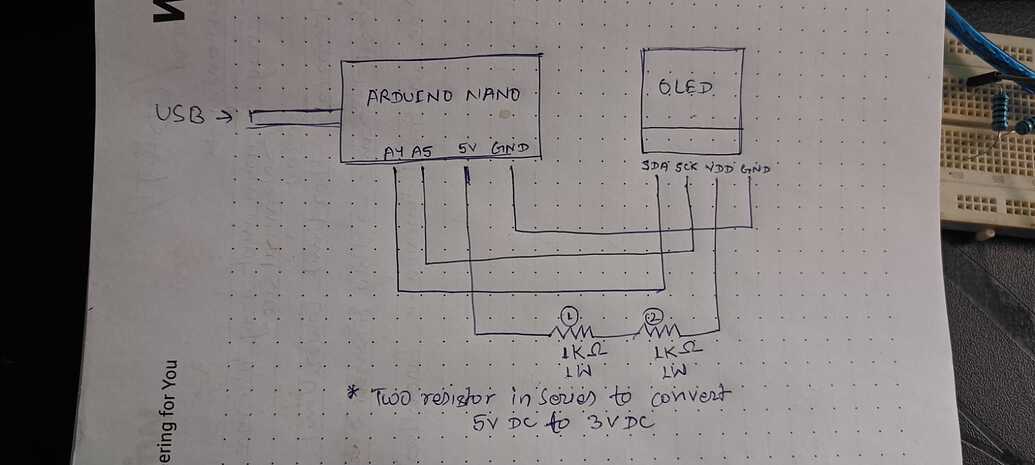 ARDUINO NANO
OLED
USB →
A4 A5 5V GND
SDA SCK VDD GND
1 2
1KΩ 1KΩ
1W 1W
* Two resistor in series to convert
5V DC to 3V DC
ering for You